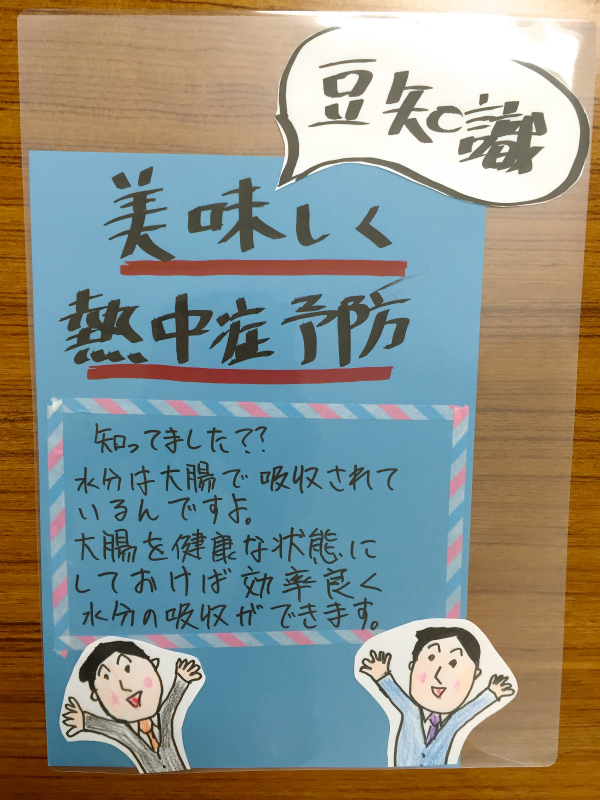 豆知識
美味しく
熱中症予防
知ってましたて??
水分は大腸で吸収されて
いるんですよ。
大腸を健康な状態に
しておけば効率良く
水分の吸収ができます。